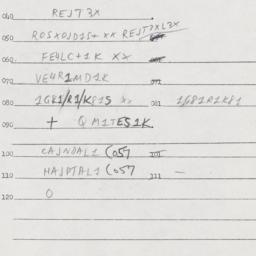 040 REJT 3X
050 ROSXOJDJS+ XX REJTXL3X
060 FE4LC+1K XX
070 VE4R1MD1K 072
081 1GR1/R1/K81S XX 081 1G81R1K81
090 + QM1TES1K
100 CAJNDAL1 (057 101
110 HAJPTAL1 (057 111 —
120 0